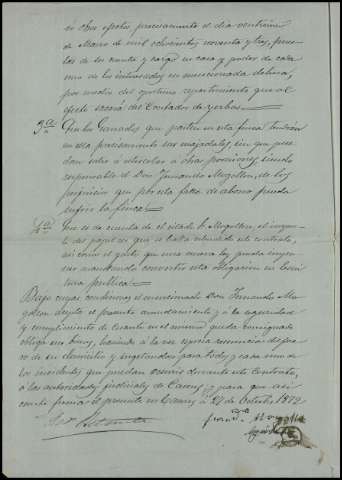 ú otros efectos precisamente el día veintinueve
de Marzo de mil ochocientos noventa y tres, pues
los de su cuenta y cargo en casa y poder de cada
uno de los interesados en mencionada dehesa,
por medio del oportuno repartimiento que al
efecto sacará del Contador de yerbas.
3ª Que los Ganados que pasten en esta finca tendrán
en ella precisamente sus majadales, sin que pue
dan salir á otras posesiones, siendo
responsable el Don Fernando Mogollon, de los
perjuicios que por esta falta de abono pueda
sufrir la finca.
4ª Que es de cuenta del citado Sr. Mogollon, el importe
del papel en que se halla estendido este contrato,
así como el gasto que una vez la ley pueda
convertir esta obligacion en Escri
tura publica.
Bajo cuyas condiciones el mencionado Don Fernando Mo
gollon acepta el presente arrendamiento y á la seguridad
y cumplimiento de cuanto en el mismo queda consignado
obliga sus bienes, haciendo á la vez espresa renuncia del fue
ro de su domicilio y sugetandose para todos y cada uno de
los incidentes que puedan ocurrir durante este Contrato,
á las autoridades judiciales de Caceres; y para que así
conste firma el presente en Caceres á 27 de Octubre 1892